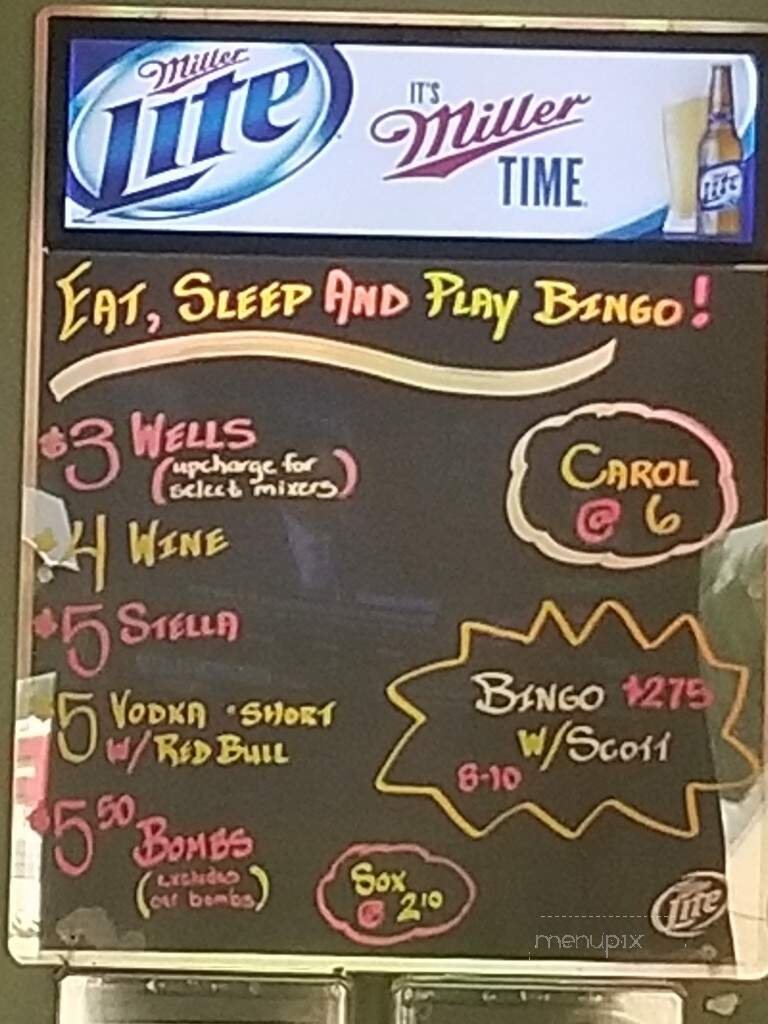 Miller
Lite
IT'S
Miller
TIME
EAT, SLEEP AND PLAY BINGO!
$3 WELLS
(upcharge for
select mixers)
CAROL
@ 6
$4 WINE
$5 STELLA
$5 VODKA • SHORT
W/ RED BULL
BINGO $275
W/SCOTT
8-10
$5 50 BOMBS
(excludes
car bombs)
SOX
@ 2 10
Lite
menupix